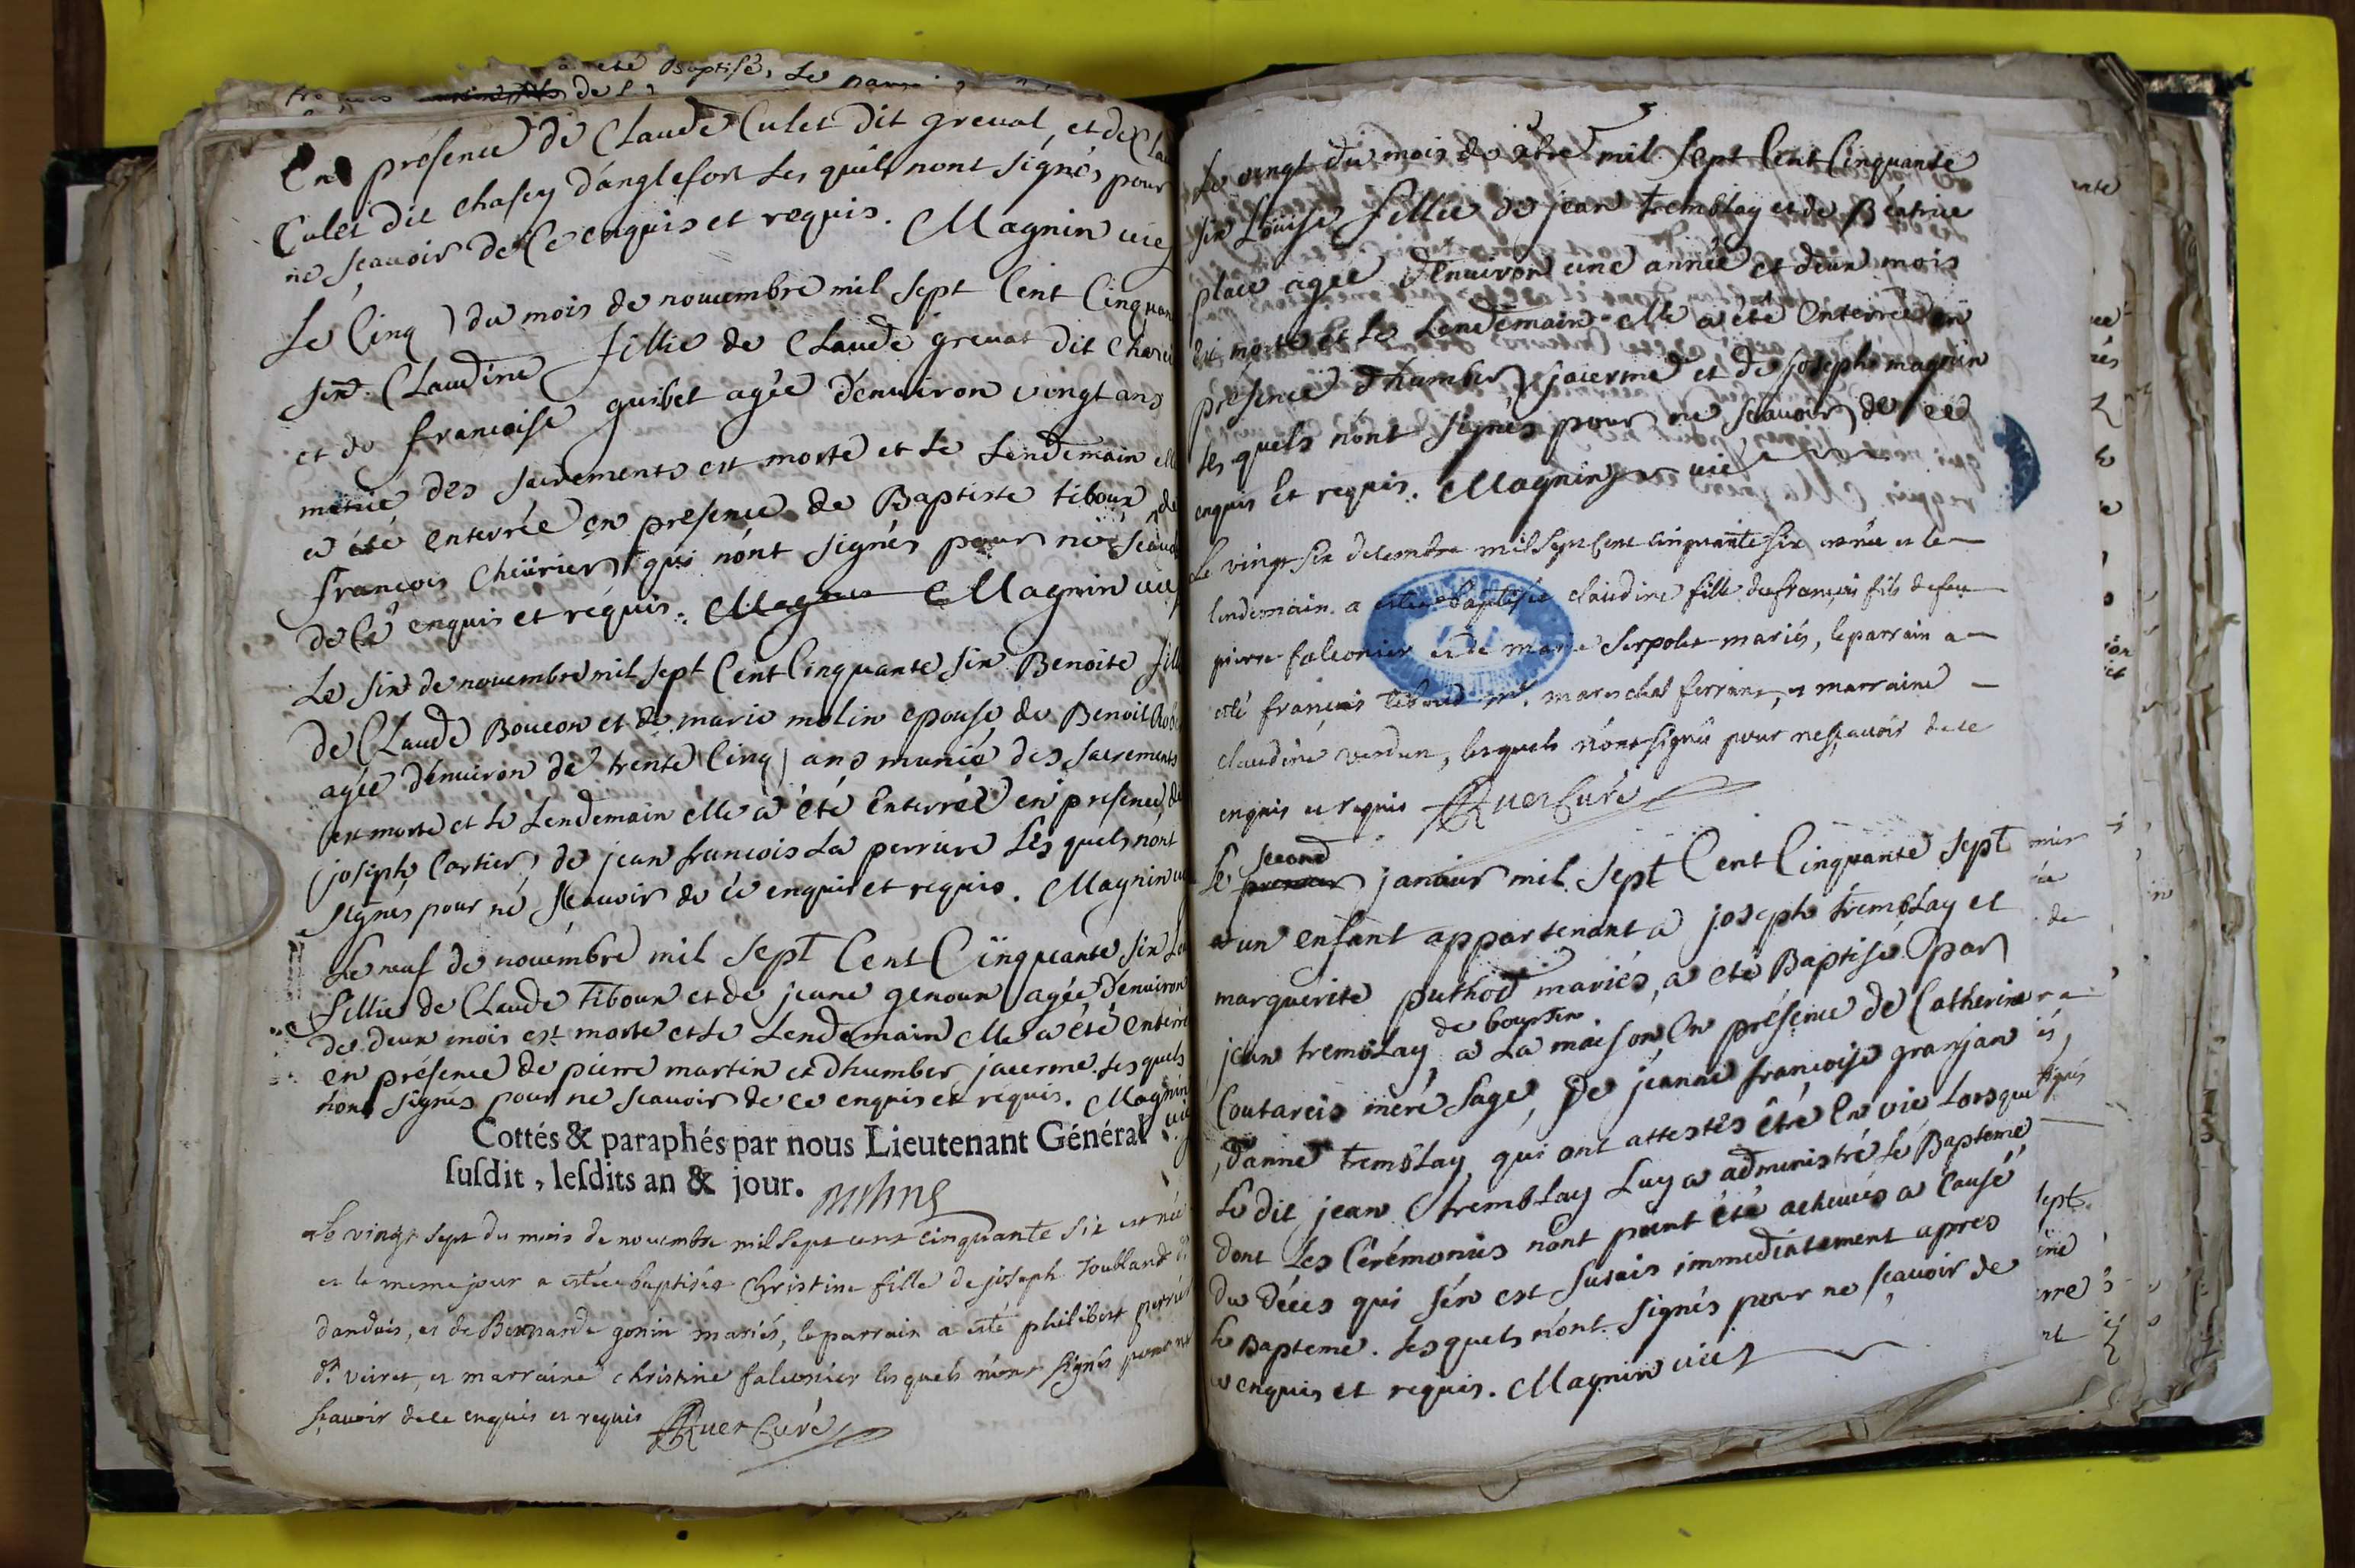 a été Baptisé, Le
En présence de Claude Culet dit greual, et de
Culet dit chasey d'anglefort Les quels nont signés pour
ne sçauoir de Ce enquis et requis. Magnin uic
Le Cinq du mois de nouembre mil sept Cent Cinquan
six Claudine fillie de Claude greuat dit
et de francoise guibet agée d'enuiron vingt ans
munie des sacrements est morte et le Lendemain elle
a été enterrée en présence de Baptiste tiboux de
francois qui nónt signés pour ne
de Ce enquis et réquis. Magnin Magnin uic
Le six de nouembre mil sept Cent Cinquante six Benoite fill
de Claude Boucon et de marie molin epouse de Benoit
agée dénuiron de trente Cinq ans munie des sacrements
est morte et le Lendemain elle a été Enterrée en présence de
joseph Cartier, de jean francois La perriere Les quels nont
signés pour né sçauoir de cé enquis et requis. Magnin
Le neuf de nouémbre mil sept Cent Cinquante six
fillie de Claude Tiboux et de jeane genoux agée d'enuiron
de deux mois est morte et le Lendemain elle a été enterré
en présence de pierre martin et d'humber jacerme Les quels
nont signés pour ne scauoir de ce enquis et réquis. Magnin
uic
Cottés & paraphés par nous Lieutenant Général
susdit, lesdits an & jour.
Le vingt sept du mois de nouembre mil sept cent cinquante six est née
et le meme jour a estée baptisée Christine fille de joseph Toubland
danduis, et de Bernarde gonin mariés, le parrain a esté philibert
dit veiret, et marraine christine falconier lesquels n'ont signés pour ne
sçauoir de ce enquis et requis Curé
Le vingt du mois de xbre mil sept Cent Cinquante
six Louise fillie de jean tremblay et de Béatrice
place agée d'enuiron une année et deux mois
est morte et Le Lendemain elle a été Enterrée en
présence d'humber jacerme et de joseph magnin
Les quels nónt signés pour ne sçauoir de ce
enquis Et requis. Magnin uic
Le vingt six decembre mil sept cent cinquante six est née et le
lendemain a estée baptisée claudine fille de francois fils de feu
pierre falconier et de marie serpolet mariés, le parrain a
esté francois tiboud mareschal ferrant, et marraine
claudine verdun, lesquels n'ont signés pour ne sçauoir de ce
enquis et requis Curé
second
Le premier januier mil sept Cent Cinquante sept
un enfant appartenant a joseph tremblay et
marguerite puthod mariés, a eté Baptisé par
de bourten
jean tremblay, a La maison En présence de Catherine
Coutareis mere sage, de jeanne francoise granjan
d'anne tremblay, qui ont attestés être En vie Lorsque
Le dit jean tremblay Luy a administré Le Bapteme
dont Les Cérémonies nont point été acheués a Cause
du déces qui s'en est suiuis immediatement apres
Le Bapteme. Lesquels nónt signés pour ne sçauoir de
ce enquis et requis. Magnin uic